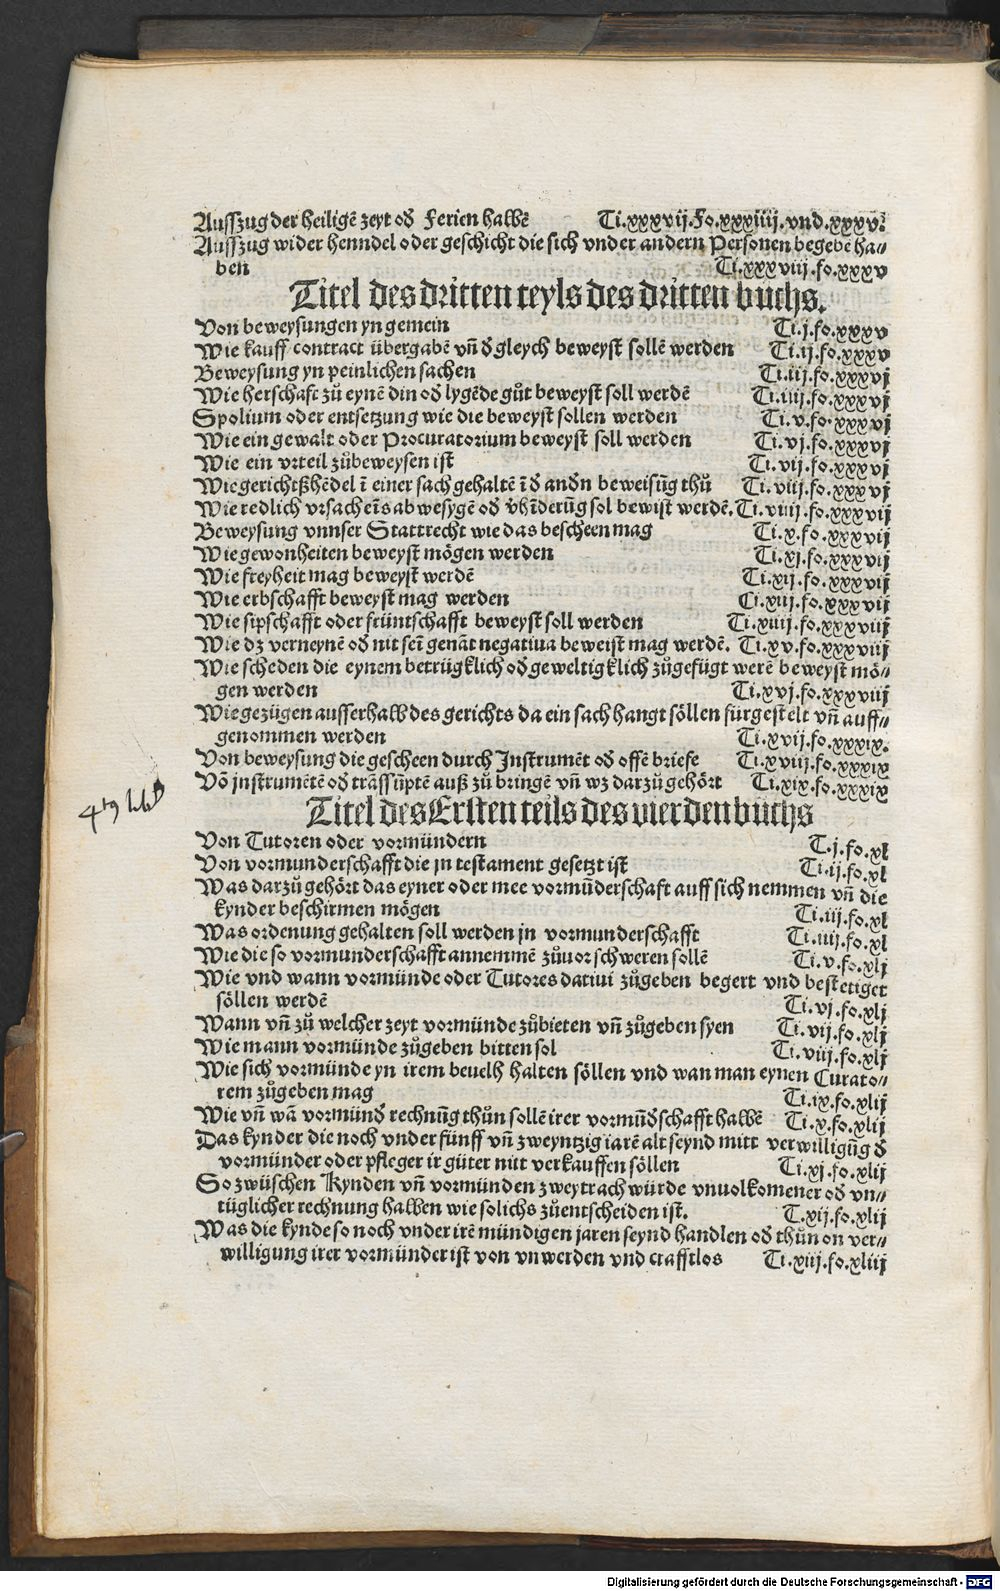 Ausszug der heiligē zeyt od̄ Ferien halbē Ti.xxxvij.Fo.xxxiiij.vnd.xxxv.
Ausszug wider henndel oder geschicht die sich vnder andern Personen begebē ha//
ben Ti.xxxviij.fo.xxxv
Titel des dritten teyls des dritten buchs.
Von beweysungen yn gemein Ti.j.fo.xxxv
Wie kauff contract übergabē vn̄ d̄gleych beweyst sollē werden Ti.ij.fo.xxxv
Beweysung yn peinlichen sachen Ti.iij.fo.xxxvj
Wie herschaft zů eynē din od̄ lygēde gůt beweyst soll werdē Ti.iiij.fo.xxxvj
Spolium oder entsetzung wie die beweyst sollen werden Ti.v.fo.xxxvj
Wie ein gewalt oder Procuratorium beweyst soll werden Ti.vj.fo.xxxvj
Wie ein vrteil zůbeweysen ist Ti.vij.fo.xxxvj
Wie gerichtßhēdel ī einer sach gehaltē ī d̄ and̄n beweisūg thů Ti.viij.fo.xxxvj
Wie redlich vrsachen̄s abwesygē od̄ v̄hīderūg sol bewist werdē. Ti.viiij.fo.xxxvij
Beweysung vnnser Stattrecht wie das bescheen mag Ti.x.fo.xxxvij
Wie gewonheiten beweyst mögen werden Ti.xj.fo.xxxvij
Wie freyheit mag beweyst werdē Ti.xij.fo.xxxvij
Wie erbschafft beweyst mag werden Ti.xiij.fo.xxxvij
Wie sipschafft oder früntschafft beweyst soll werden Ti.xiiij.fo.xxxviij
Wie dz verneynē od̄ nit sen̄ genāt negatiua beweist mag werdē. Ti.xv.fo.xxxviij
Wie scheden die eynem betrügklich od̄ geweltigklich zůgefügt werē beweyst mö//
gen werden Ti.xvj.fo.xxxviij
Wie gezügen ausserhalb des gerichts da ein sach hangt söllen fürgestelt vn̄ auff//
genommen werden Ti.xvij.fo.xxxix.
Von beweysung die gescheen durch Instrumēt od̄ offē briefe Ti.xviij.fo.xxxix
Vō instrumētē od̄ trāssūptē auß zů bringē vn̄ wz darzů gehört Ti.xix.fo.xxxix
Titel des Ersten teils des vierden buchs
Von Tutoren oder vormündern T.j.fo.xl
Von vormunderschafft die jn testament gesetzt ist Ti.ij.fo.xl
Was darzů gehört das eyner oder mee vormūderschaft auff sich nemmen vn̄ die
kynder beschirmen mögen Ti.iij.fo.xl
Was ordenung gehalten soll werden jn vormunderschafft Ti.iiij.fo.xl
Wie die so vormunderschafft annemmē zůuor schweren sollē Ti.v.fo.xlj
Wie vnd wann vormünde oder Tutores datiui zůgeben begert vnd bestetiget
söllen werdē Ti.vj.fo.xlj
Wann vn̄ zů welcher zeyt vormünde zůbieten vn̄ zůgeben syen Ti.vij.fo.xlj
Wie mann vormünde zůgeben bitten sol Ti.viij.fo.xlj
Wie sich vormünde yn irem beuelh halten söllen vnd wan man eynen Curato//
rem zůgeben mag Ti.ix.fo.xlij
Wie vn̄ wā vormünd̄ rechnūg thůn sollē irer vormūd̄schafft halbē Ti.x.fo.xlij
Das kynder die noch vnder fünff vn̄ zweyntzig iarē alt seynd mitt verwilligūg d̄
vormünder oder pfleger ir güter nitt verkauffen söllen Ti.xj.fo.xlij
So zwüschen Kynden vn̄ vormünden zweytrach würde vnuolkomener od̄ vn//
tüglicher rechnung halben wie solichs zůentscheiden ist. T.xij.fo.xlij
Was die kynde so noch vnder irē mündigen jaren seynd handlen od̄ thůn on ver//
willigung irer vormünder ist von vnwerden vnd crafftlos Ti.xiij.fo.xliij
Digitalisierung gefördert durch die Deutsche Forschungsgemeinschaft - DFG